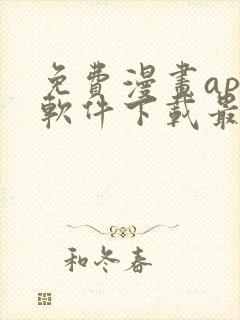 免費漫畫ap
軟件下載最
和冬春